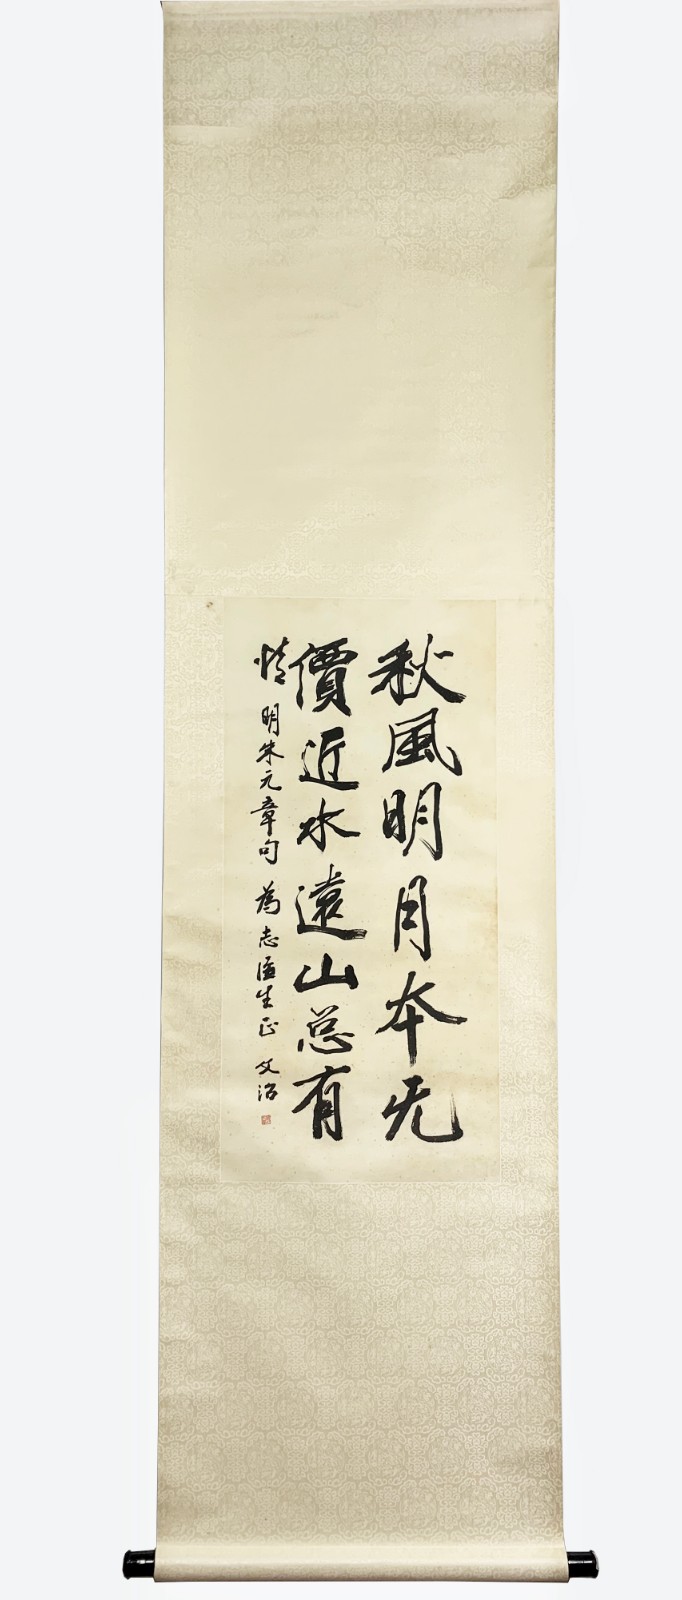 秋風明月本无
價近水遠山总有
情 明朱元章句 為志 生正 文治